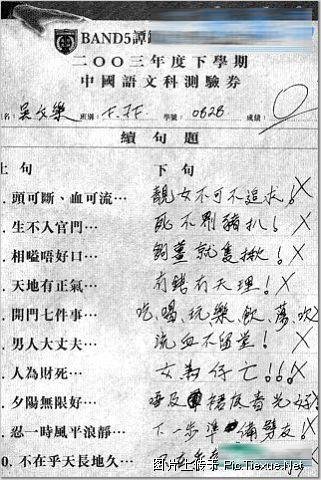 BAND5譚
二〇〇三年度下學期
中國語文科測驗劵
名: 吳文樂 班別: F.3F 學號: 0626 成績: 0
續句題
上句 下句
. 頭可斷、血可流… 靚女不可不追求!
. 生不入官門… 死不劏豬扒!
. 相嗌唔好口…
. 天地有正氣… 有錢有天理!
. 開門七件事… 吃、喝、玩、樂、飲、蕩、吹
. 男人大丈夫… 流血不留堂!
. 人為財死… 女為仔亡!!!
. 夕陽無限好…
. 忍一時風平浪靜… 下一步準備劈友!
0. 不在乎天長地久…
图片上传于:PicTiexue.Net